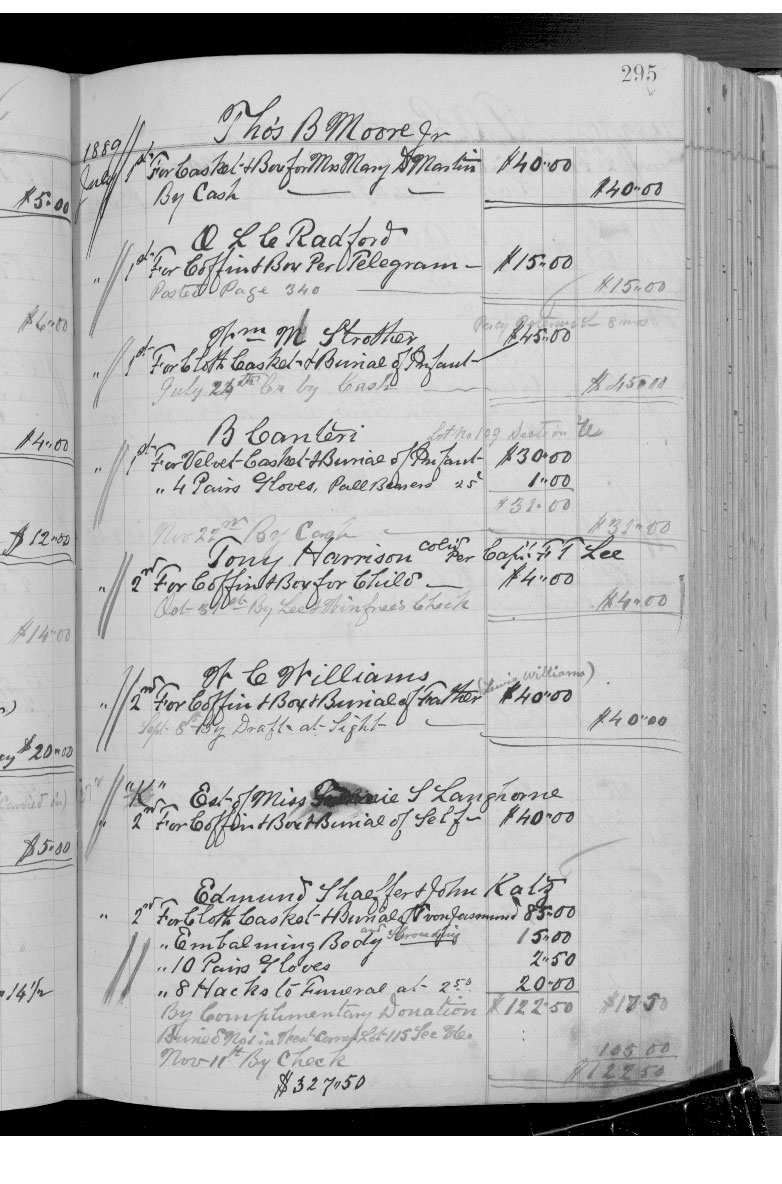 $5.00
$6.00
$4.00
$12.00
$14.00
$20.00
$5.00
14 1/2
295
Thos B Moore Jr
1889
July 1st For Casket & Box for Mrs Mary D Martin $40.00
By Cash $40.00
O L C Radford
" 1st For Coffin & Box Per Telegram $15.00
Posted Page 340 $15.00
Wm M Strother
" 1st For Cloth Casket & Burial of Infant $45.00
July 24th Cr by Cash $45.00
B Canteri Lot No 109 Section U
" 1st For Velvet Casket & Burial of Infant $30.00
" 4 Pairs Gloves, Pall Bearers 25c 1.00
$31.00
Nov 22nd By Cash $31.00
Tony Harrison Cold Per Capt. F T Lee
" 2nd For Coffin & Box for Child $4.00
Oct 31st By Lee & Winfree's Check $4.00
W C Williams
" 2nd For Coffin & Box & Burial of Father (Lewis Williams) $40.00
Sept 8th By Draft at Sight $40.00
"K" Est of Miss S Langhorne
" 2nd For Coffin & Box & Burial of Self $40.00
Edmund Shaeffer & John Katz
" 2nd For Cloth Casket & Burial of F von Jasmund 85.00
" Embalming Body and Shrouding 15.00
" 10 Pairs Gloves 2.50
" 8 Hacks to Funeral at 2.50 20.00
By Complimentary Donation $122.50 $17.50
Buried No 1 in Lot 115 Sec
Nov 11th By Check 105.00
$122.50
$327.50